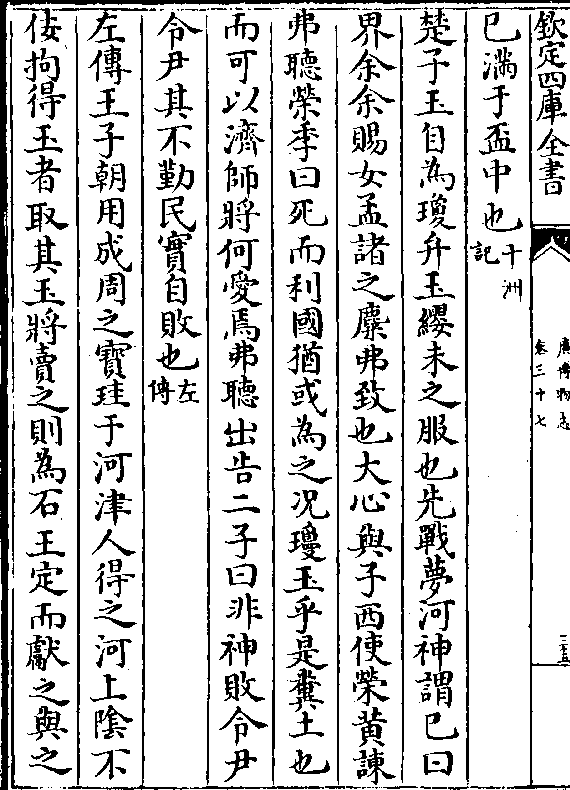 欽定四庫全書
廣博物志
卷三十七
已滿于盃中也十洲記
楚子玉自為瓊弁玉纓未之服也先戰夢河神謂已曰
畀余余賜女孟諸之麋弗致也大心與子西使榮黃諫
弗聽榮季曰死而利國猶或為之況瓊玉乎是糞土也
而可以濟師將何愛焉弗聽出告二子曰非神敗令尹
令尹其不勤民實自敗也左傳
左傳王子朝用成周之寶珪于河津人得之河上陰不
佞拘得玉者取其玉將賣之則為石王定而獻之與之